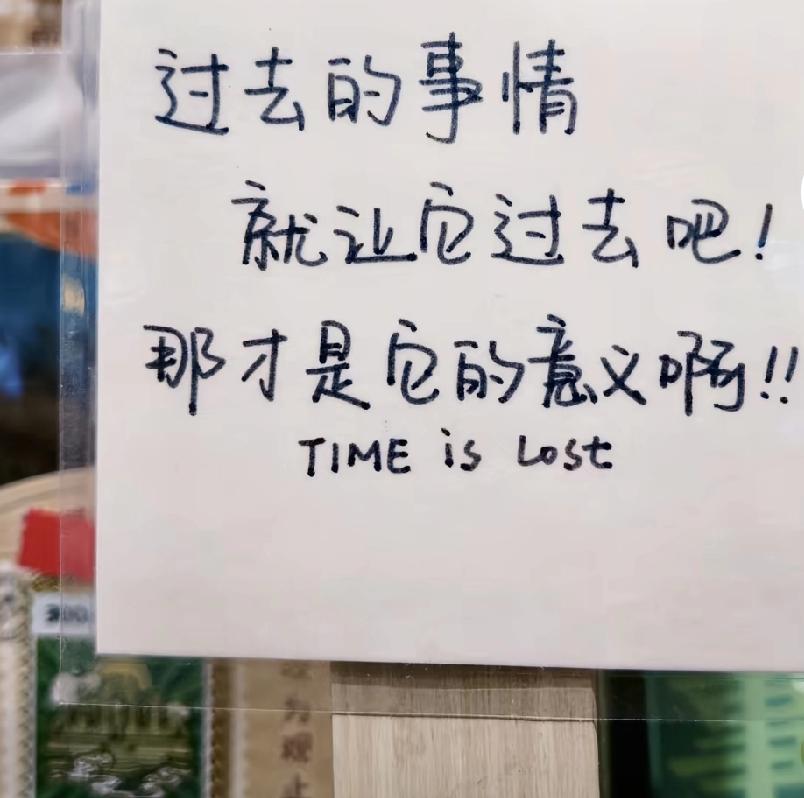 过去的事情
就让它过去吧!
那才是它的意义啊!!
TIME is Lost